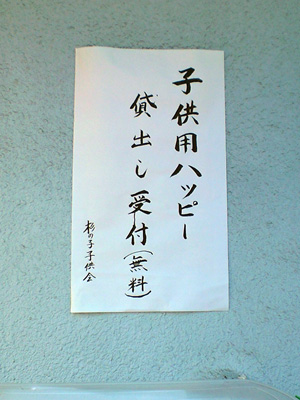 子供用ハッピー
貸出し受付(無料)
杉の子子供会